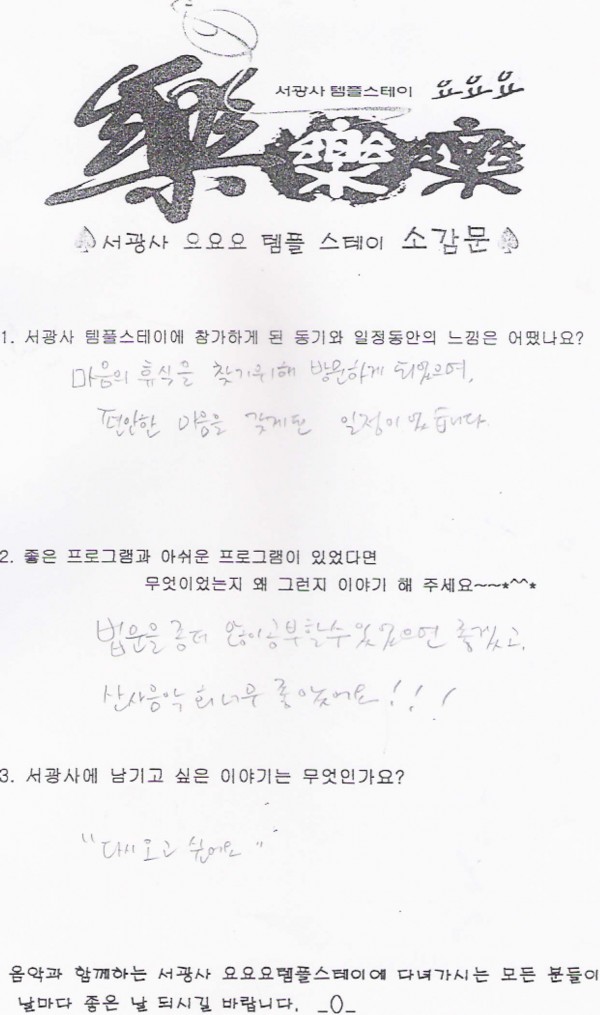 서광사 템플스테이 요요요
樂樂樂
서광사 요요요 템플 스테이 소감문
1. 서광사 템플스테이에 참가하게 된 동기와 일정동안의 느낌은 어땠나요?
마음의 휴식을 찾기위해 방문하게 되었으며,
편안한 마음을 갖게된 일정이었습니다.
2. 좋은 프로그램과 아쉬운 프로그램이 있었다면
무엇이었는지 왜 그런지 이야기 해 주세요~~*^^*
법문을 좀더 많이공부할수 있었으면 좋겠고,
산사음악회너무 좋았어요!!!
3. 서광사에 남기고 싶은 이야기는 무엇인가요?
"다시오고 싶어요"
음악과 함께하는 서광사 요요요템플스테이에 다녀가시는 모든 분들이
날마다 좋은 날 되시길 바랍니다. _()_